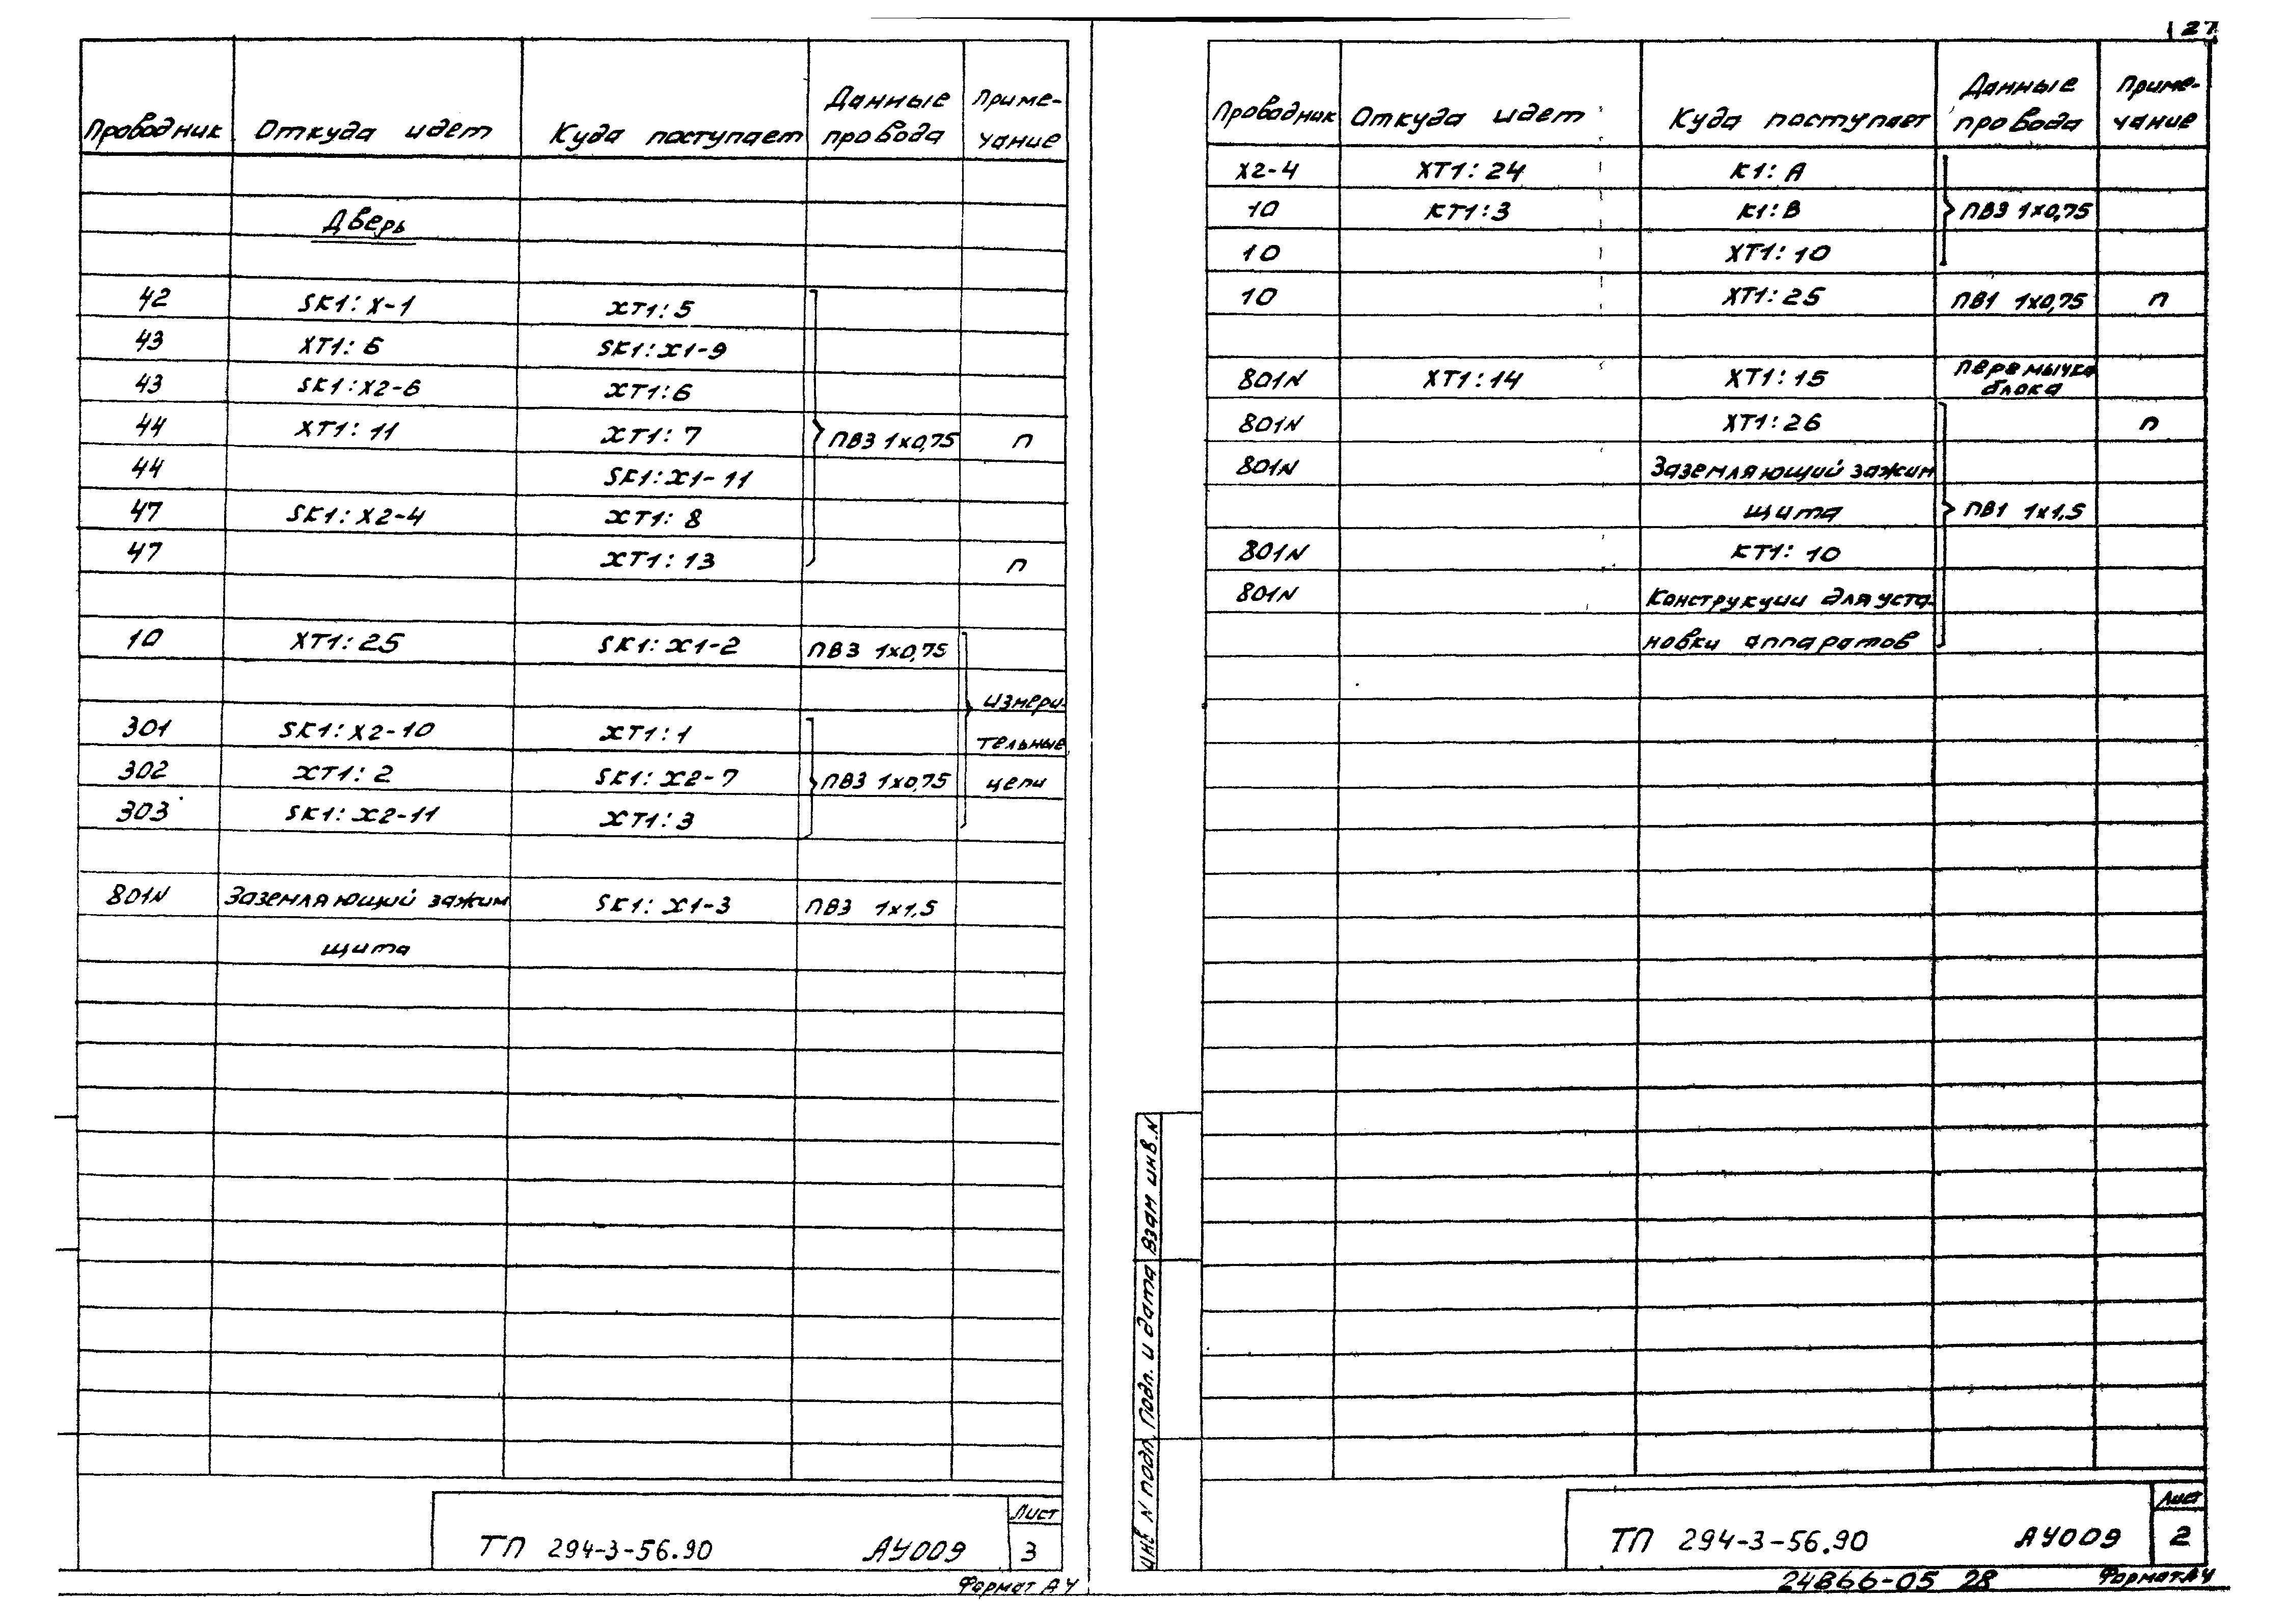 27
Проводник Откуда идет Куда поступает Данные провода Приме-чание
Дверь
42 SK1:X-1 XT1:5
43 XT1:6 SK1:X1-9
43 SK1:X2-6 XT1:6
44 XT1:11 XT1:7 ПВ3 1х0,75 п
44 SK1:X1-11
47 SK1:X2-4 XT1:8
47 XT1:13 п
10 XT1:25 SK1:X1-2 ПВ3 1х0,75
измери-
301 SK1:X2-10 XT1:1 тельные
302 XT1:2 SK1:X2-7 ПВ3 1х0,75 цепи
303 SK1:X2-11 XT1:3
801N Заземляющий зажим SK1:X1-3 ПВ3 1х1,5
щита
ТП 294-3-56.90 АУ009 Лист 3
Формат А4
Проводник Откуда идет Куда поступает Данные провода Приме-чание
X2-4 XT1:24 K1:A
10 KT1:3 K1:B ПВ3 1х0,75
10 XT1:10
10 XT1:25 ПВ1 1х0,75 п
801N XT1:14 XT1:15 перемычка блока
801N XT1:26 п
801N Заземляющий зажим
щита ПВ1 1х1,5
801N KT1:10
801N Конструкции для уста-
новки аппаратов
Инв N подл. Подп. и дата Взам инв.N
ТП 294-3-56.90 АУ009 Лист 2
24866-05 28 Формат А4